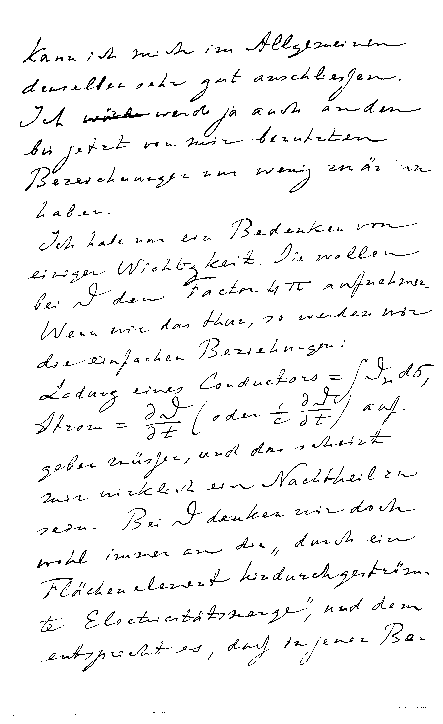 kann ich mich im Allgemeinen
denselben sehr gut anschliessen.
Ich würde werde ja auch an den
bis jetzt von mir benutzten
Bezeichnungen nur wenig zu än
haben.
Ich habe nur ein Bedenken von
einiger Wichtigkeit. Sie wollen
bei 𝔇 den Factor 4π aufnehmen.
Wenn wir das thun, so werden wir
die einfachen Beziehungen:
Ladung eines Conductors = ∫ 𝔇n dσ,
Strom = ∂𝔇/∂t (oder 1/c ∂𝔇/∂t) auf-
geben müssen, und das scheint
mir wirklich ein Nachtheil zu
sein. Bei 𝔇 denken wir doch
wohl immer an die „durch ein
Flächenelement hindurchgeström-
te Electricitätsmenge", und dem
entspricht es, dass in jener Be-